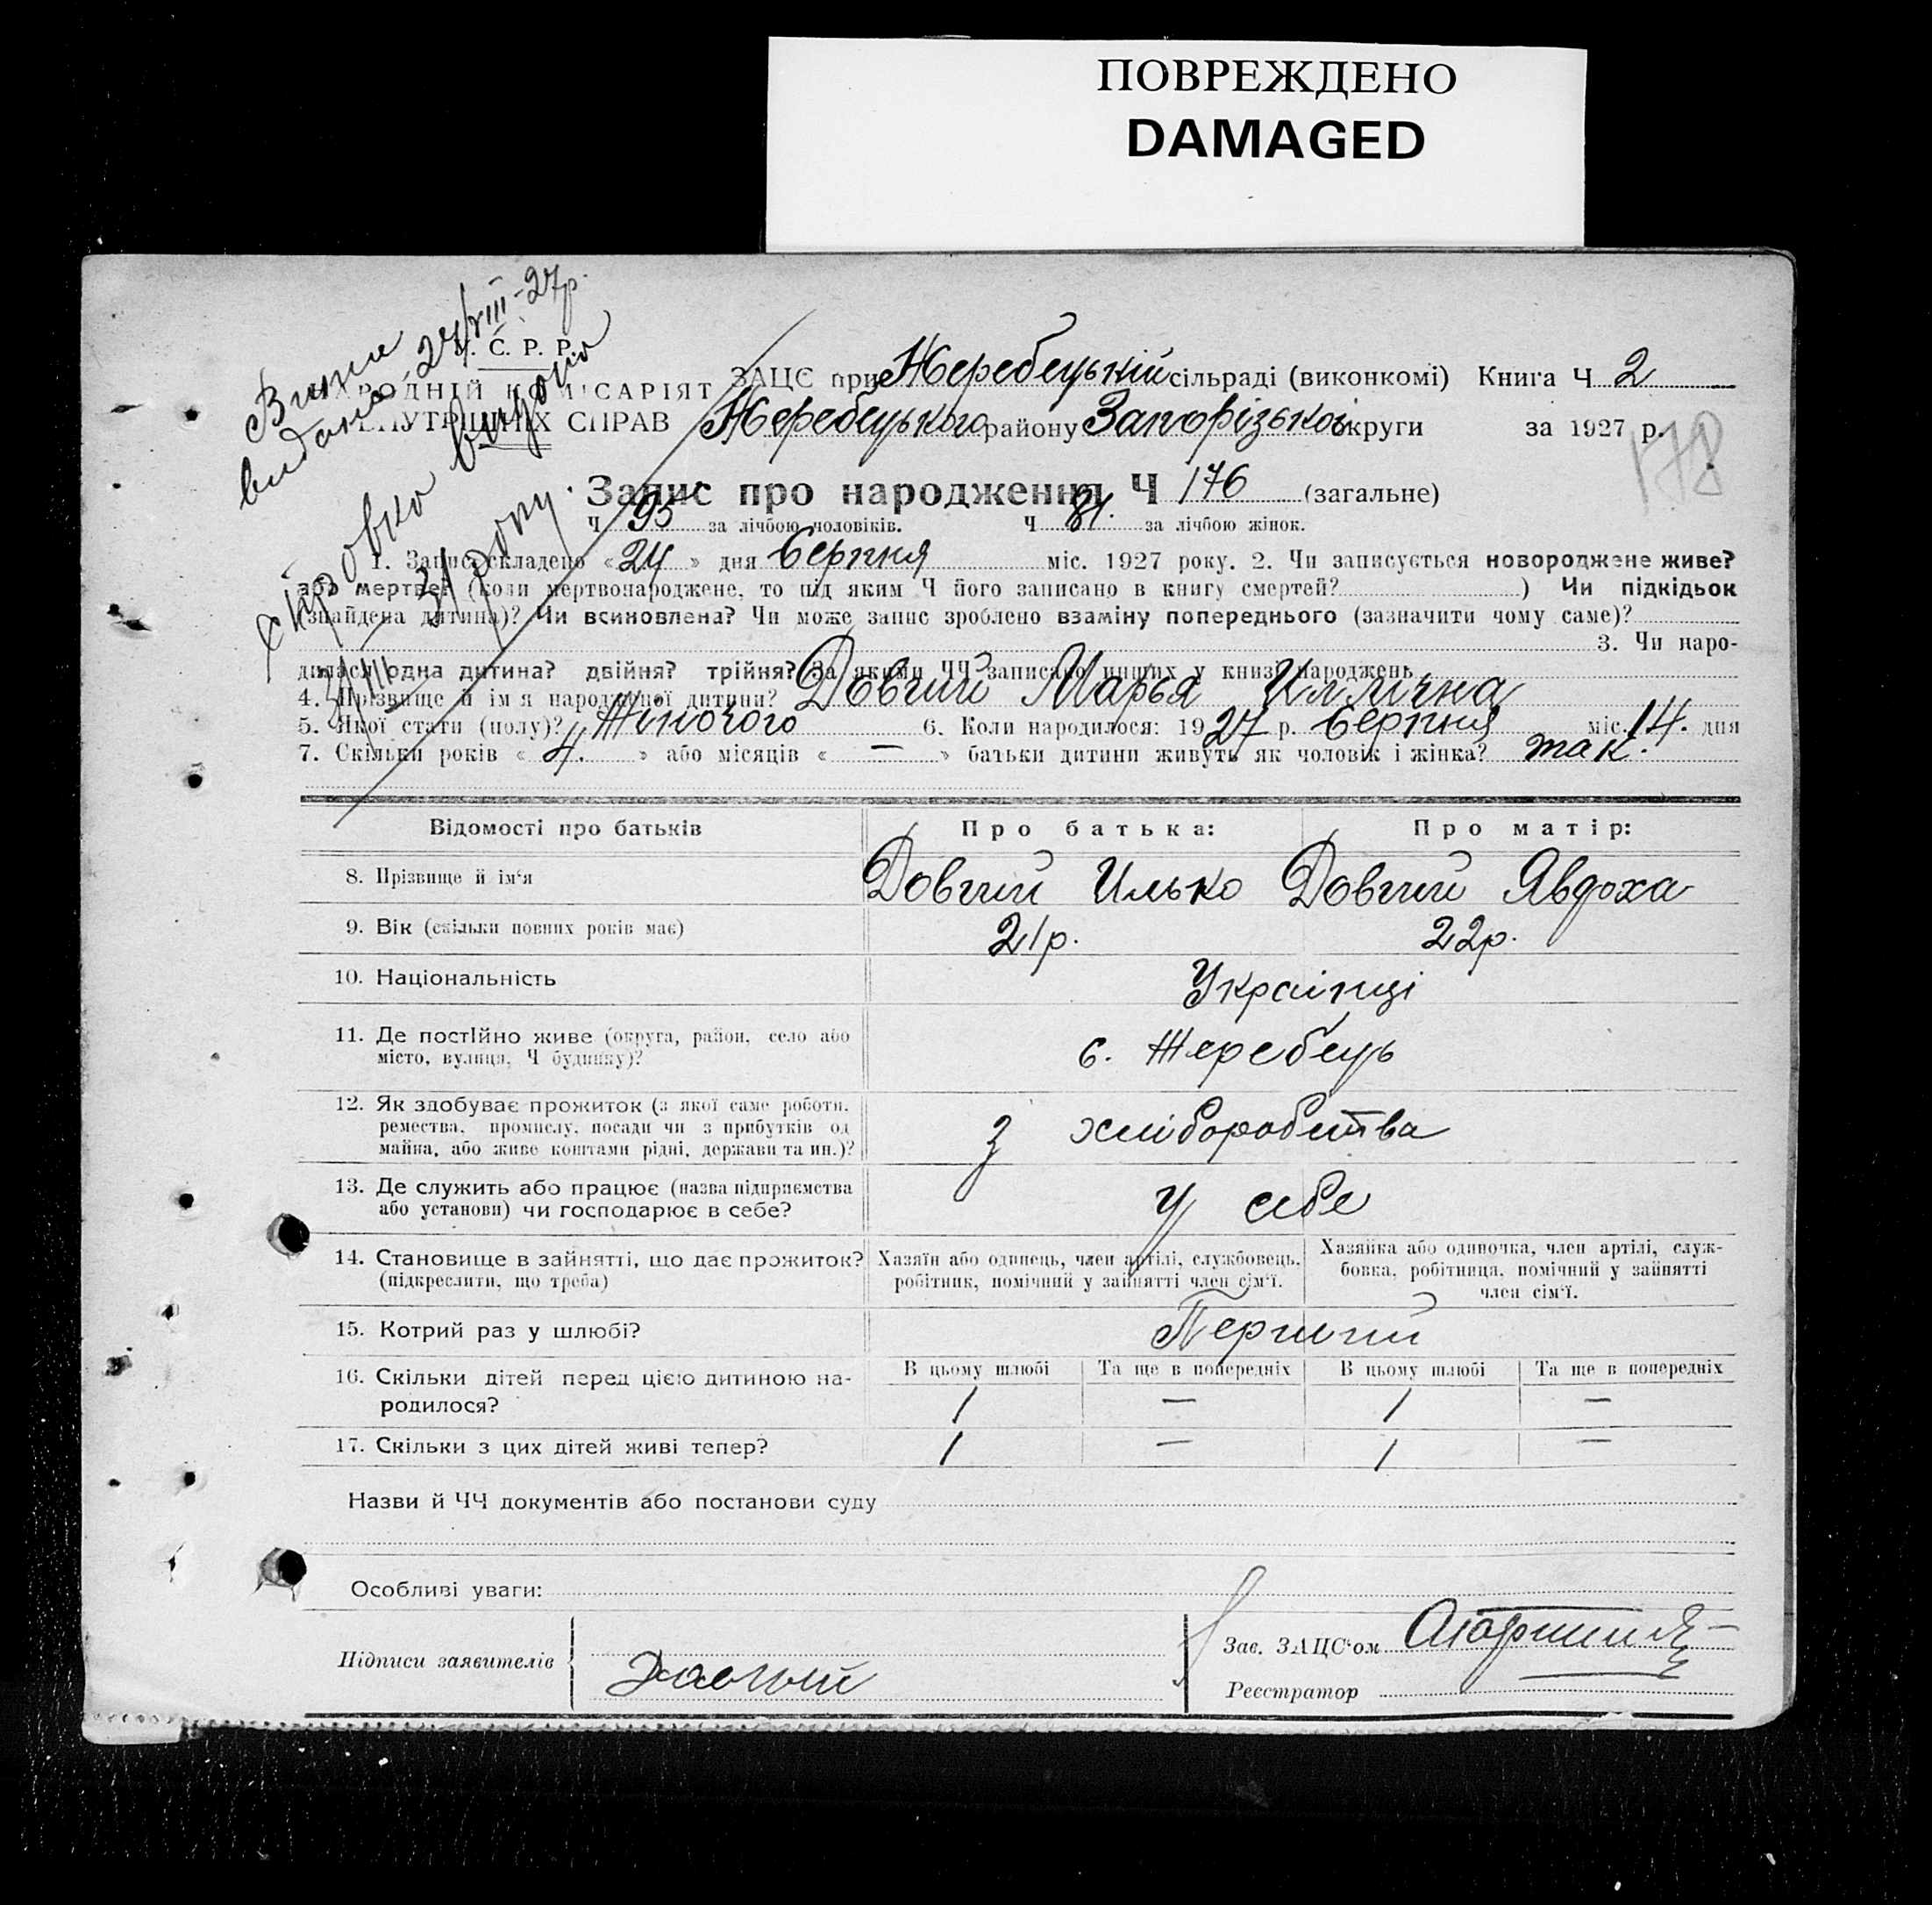 ПОВРЕЖДЕНО
DAMAGED
Випис видано 24/VIII-27р.
С. Р. Р.
НАРОДНІЙ КОМІСАРІЯТ
ВНУТРІШНІХ СПРАВ
видано
31/III 31 року.
ЗАЦС при Жеребецькій сільраді (виконкомі) Книга Ч 2
Жеребецького району Запорізької округи за 1927 р.
178
Запис про народження Ч 176 (загальне)
Ч 95 за лічбою чоловіків. Ч 81. за лічбою жінок.
1. Запис складено «24» дня Серпня міс. 1927 року. 2. Чи записується новороджене живе?
або мертве? (коли мертвонароджене, то під яким Ч його записано в книгу смертей? ) Чи підкідьок
(знайдена дитина)? Чи всиновлена? Чи може запис зроблено взаміну попереднього (зазначити чому саме)?
3. Чи наро-
дилася одна дитина? двійня? трійня? За якими ЧЧ записано инших у книзі народжень
4. Прізвище й імя народженої дитини? Довгий Марья Иллічна
5. Якої стати (полу)? Жіночого 6. Коли народилося: 1927 р. Серпня міс. 14. дня
7. Скільки років « 4. » або місяців « — » батьки дитини живуть як чоловік і жінка? так.
Відомості про батьків Про батька: Про матір:
8. Прізвище й ім'я Довгий Илько Довгий Явдоха
9. Вік (скільки повних років має) 21р. 22р.
10. Національність Українці
11. Де постійно живе (округа, район, село або
місто, вулиця, Ч будинку)? с. Жеребець
12. Як здобуває прожиток (з якої саме роботи,
ремества, промислу, посади чи з прибутків од
майна, або живе коштами рідні, держави та ин.)? З хліборобства
13. Де служить або працює (назва підприємства
або установи) чи господарює в себе? У себе
14. Становище в зайнятті, що дає прожиток?
(підкреслити, що треба)
Хазяїн або одинець, член артілі, службовець,
робітник, помічний у зайнятті член сім'ї.
Хазяйка або одиночка, член артілі, служ-
бовка, робітниця, помічний у зайнятті
член сім'ї.
15. Котрий раз у шлюбі? Перший
В цьому шлюбі Та ще в попередніх В цьому шлюбі Та ще в попередніх
16. Скільки дітей перед цією дитиною на-
родилося? 1 — 1 —
17. Скільки з цих дітей живі тепер? 1 — 1 —
Назви й ЧЧ документів або постанови суду
Особливі уваги:
Підписи заявителів Довгий
Зав. ЗАЦС'ом
Реєстратор